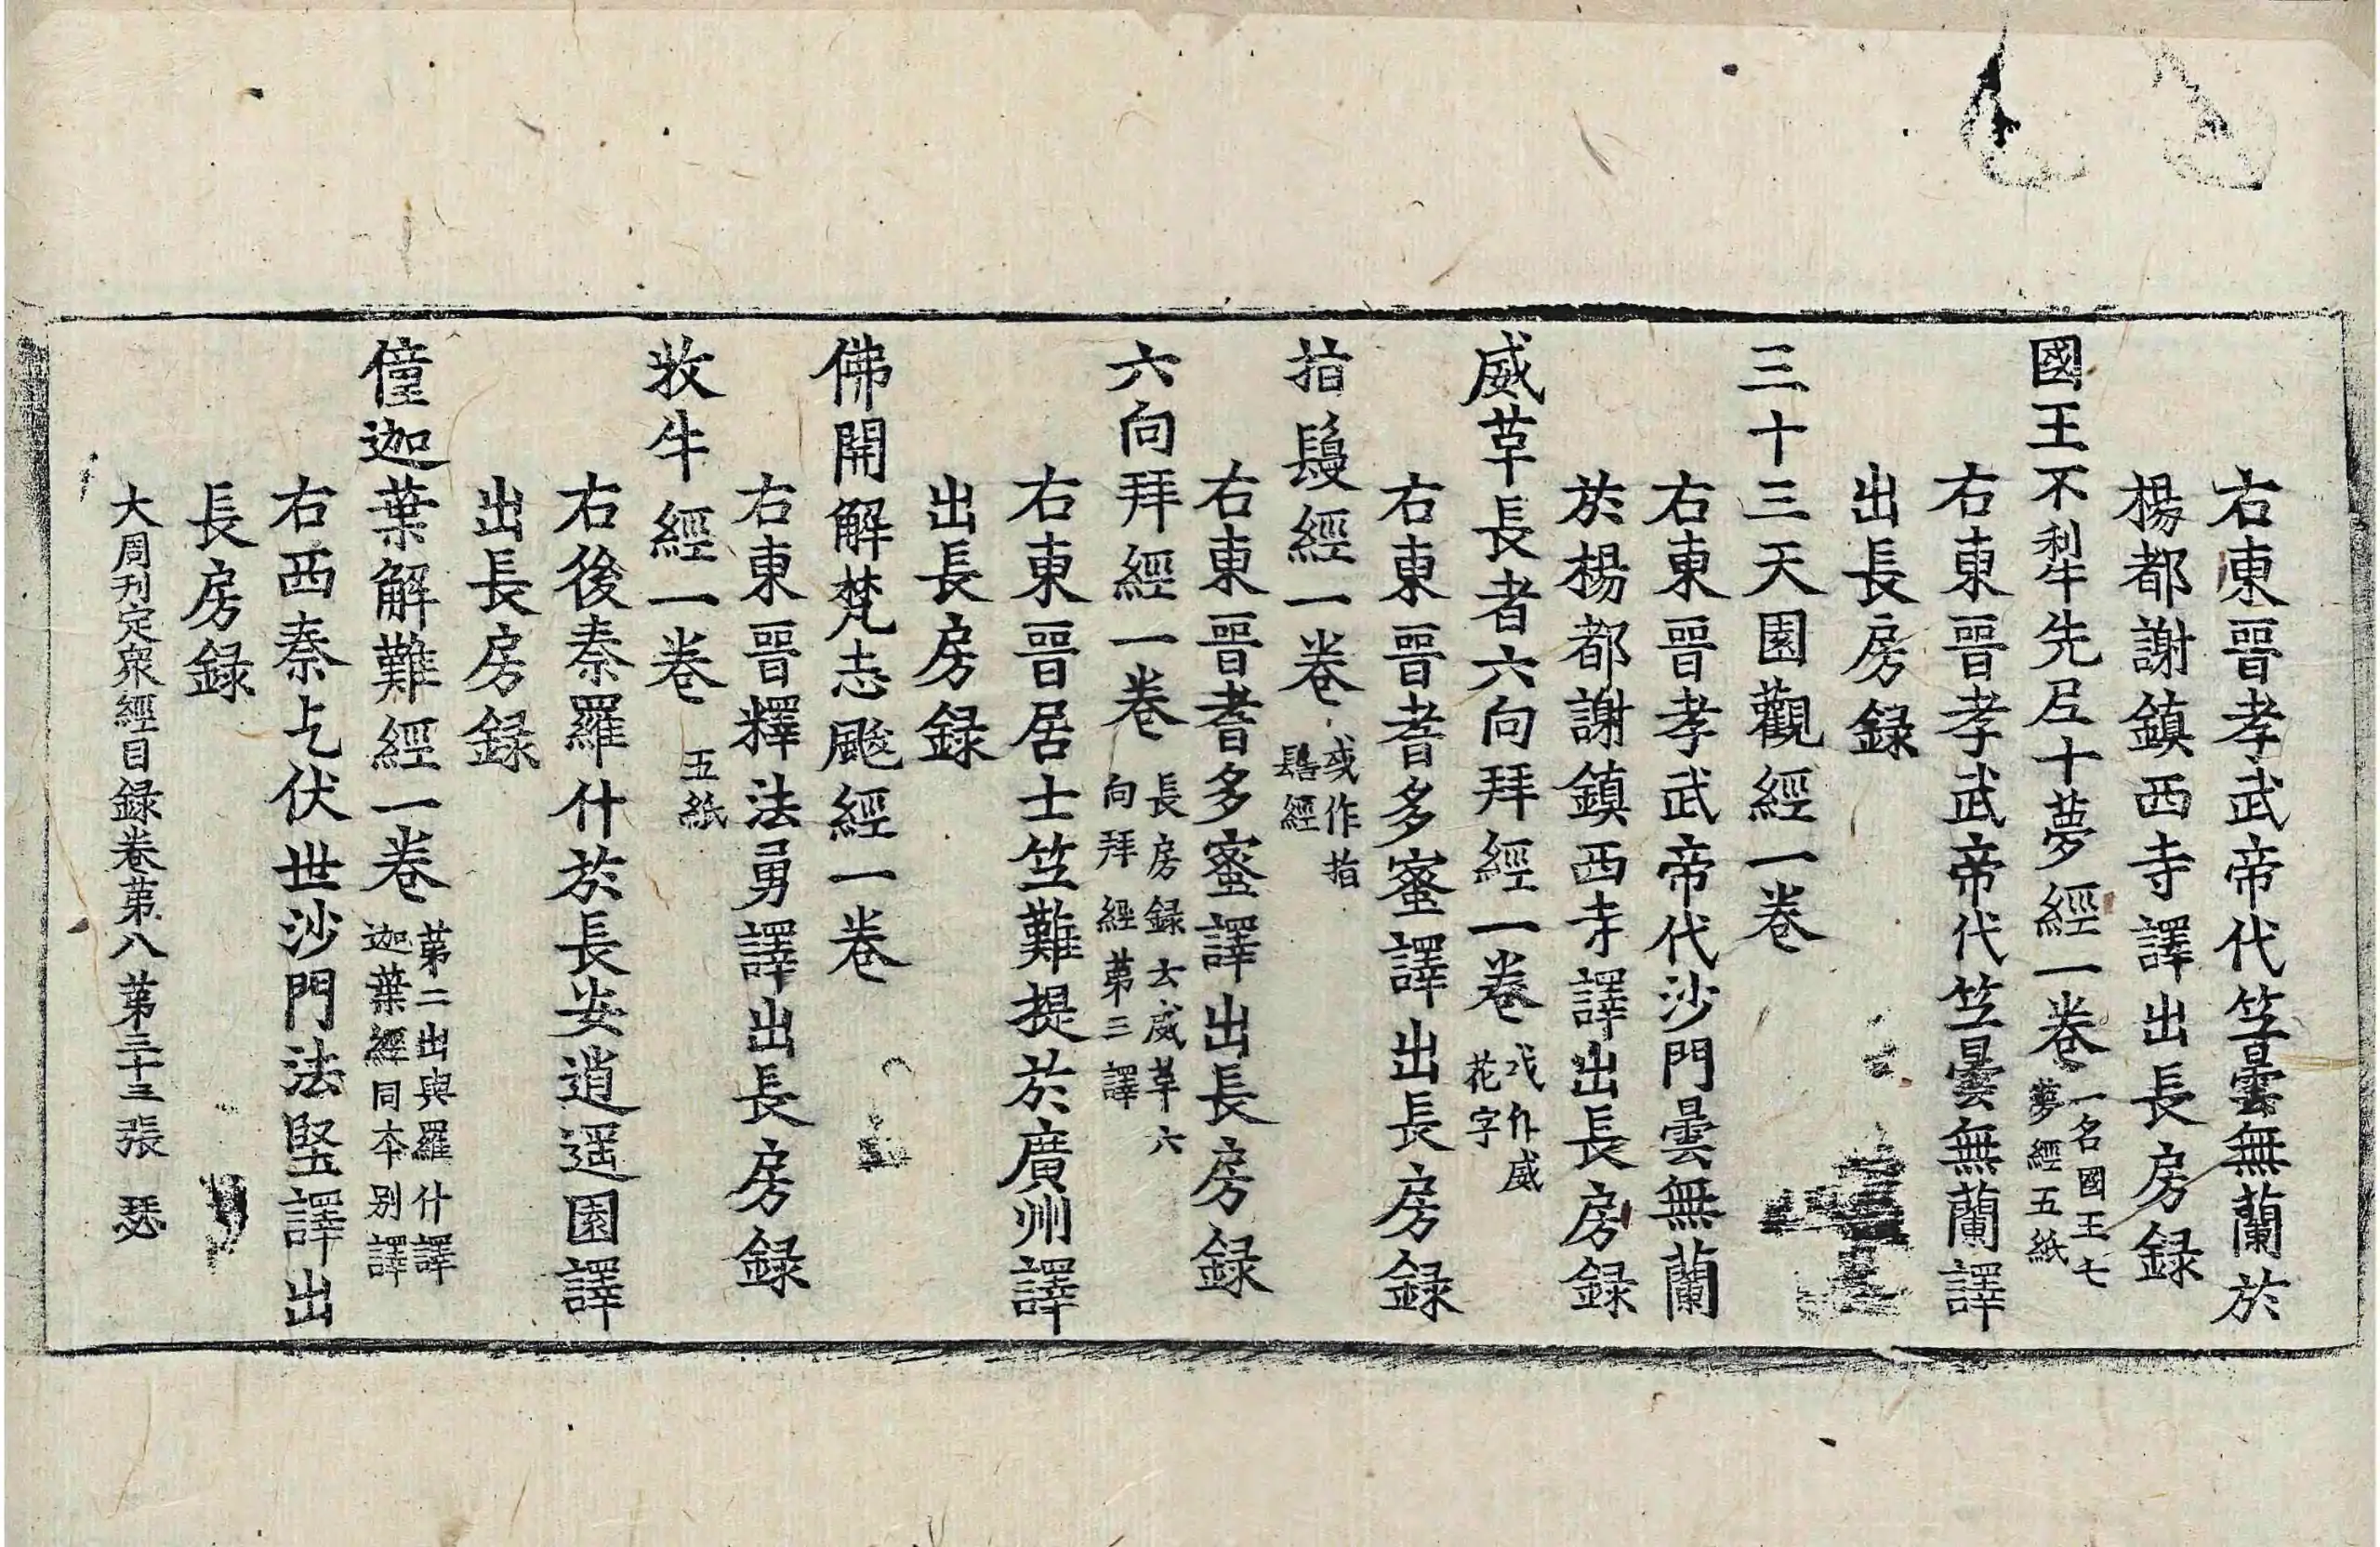 右東晉孝武帝代竺曇無蘭於
楊都謝鎮西寺譯出長房録
國王不犁先尼十夢經一卷 一名國王七夢經五紙
右東晉孝武帝代竺曇無蘭譯
出長房録
三十三天園觀經一卷
右東晉孝武帝代沙門曇無蘭
於楊都謝鎮西寺譯出長房録
威草長者六向拜經一卷 或作威花字
右東晉耆多蜜譯出長房録
指鬘經一卷 或作指髻經
右東晉耆多蜜譯出長房録
六向拜經一卷 長房録云威革六向拜經第三譯
右東晉居士竺難提於廣州譯
出長房録
佛開解梵志颰經一卷
右東晉釋法勇譯出長房録
牧牛經一卷 五紙
右後秦羅什於長安逍遥園譯
出長房録
僮迦葉解難經一卷 第二出與羅什譯迦葉經同本别譯
右西秦乞伏世沙門法堅譯出
長房録
大周刊定衆經目録卷第八 第三十三張 瑟